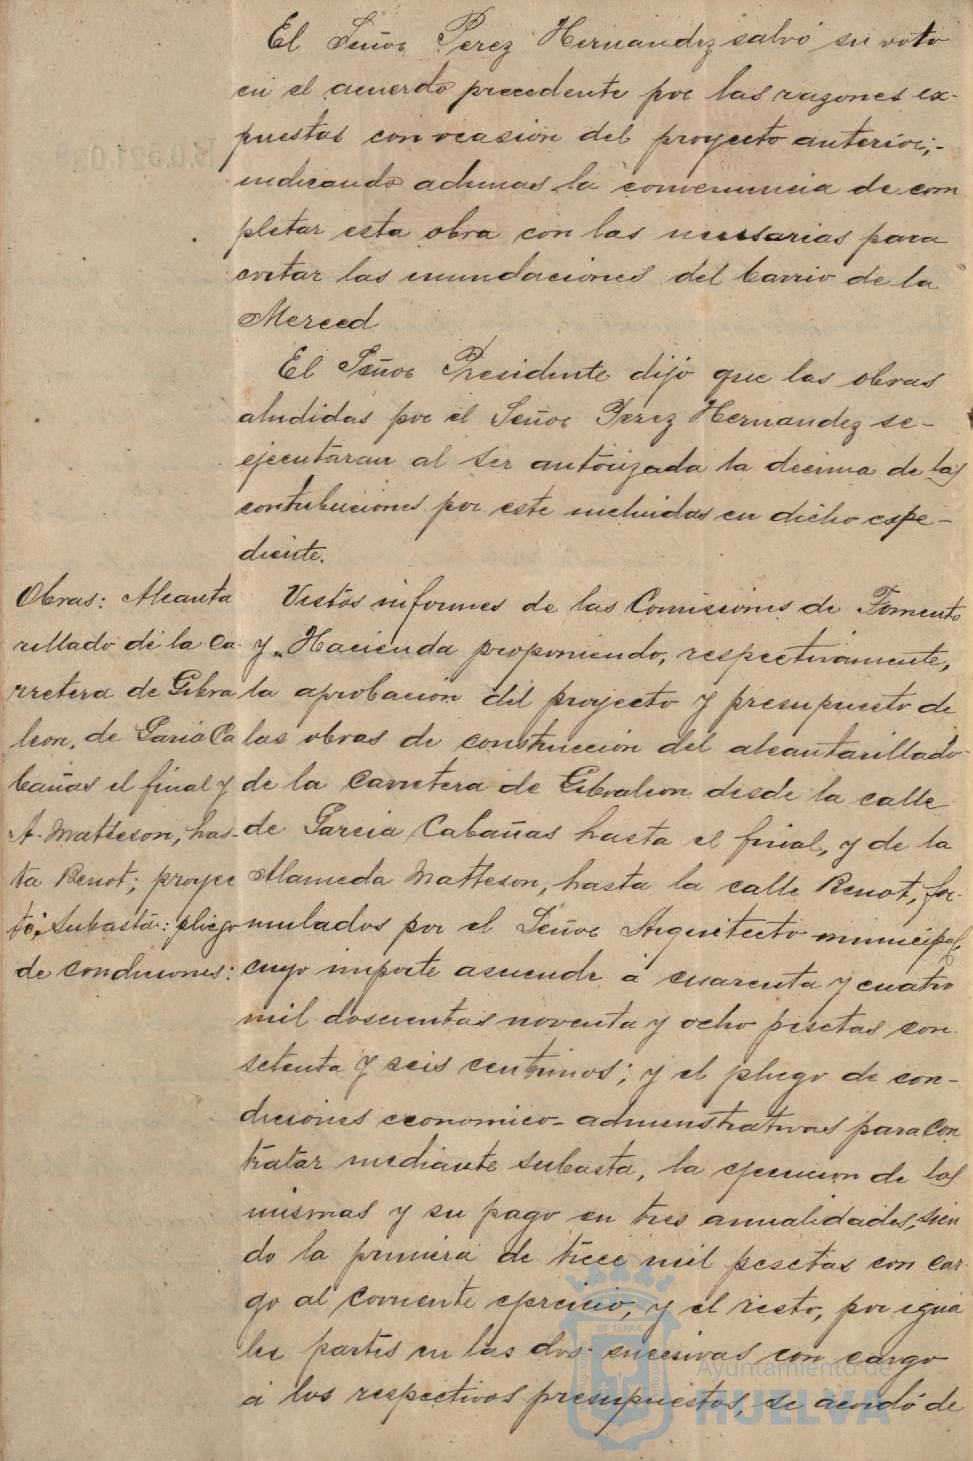 El Señor Perez Hernandez salvó su voto
en el acuerdo precedente por las razones ex-
puestas con ocasion del proyecto anterior;-
indicando ademas la conveniencia de com
pletar esta obra con las necesarias para
evitar las inundaciones del barrio de la
Merced
El Señor Presidente dijo que las obras
aludidas por el Señor Perez Hernandez se-
ejecutaran al ser autorizada la decima de las
contribuciones por este incluidas en dicho espe-
diente.
Obras: Alcanta
rillado de la Ca-
rretera de Gibra
leon, de Garcia Ca
bañas el final y
A. Matteson, has-
ta Renot; proyec
to; Subasta: pliego
de condiciones:
Vistos informes de las Comisiones de Fomento
y Hacienda proponiendo, respectivamente,
la aprobacion del proyecto y presupuesto de
las obras de construcción del alcantarillado
de la Carretera de Gibraleon desde la calle
de Garcia Cabañas hasta el final, y de la
Alameda Matteson, hasta la calle Renot, for-
mulados por el Señor Arquitecto municipal,
cuyo importe asciende á cuarenta y cuatro
mil doscientas noventa y ocho pesetas con
setenta y seis centimos; y el pliego de con-
diciones economico-administrativas para con
tratar mediante subasta, la ejecucion de las
mismas y su pago en tres anualidades, sien
do la primera de trece mil pesetas con car-
go al corriente ejercicio, y el resto, por igua
les partes en las dos sucesivas con cargo
á los respectivos presupuestos, se acordó de
Ayuntamiento de
HUELVA